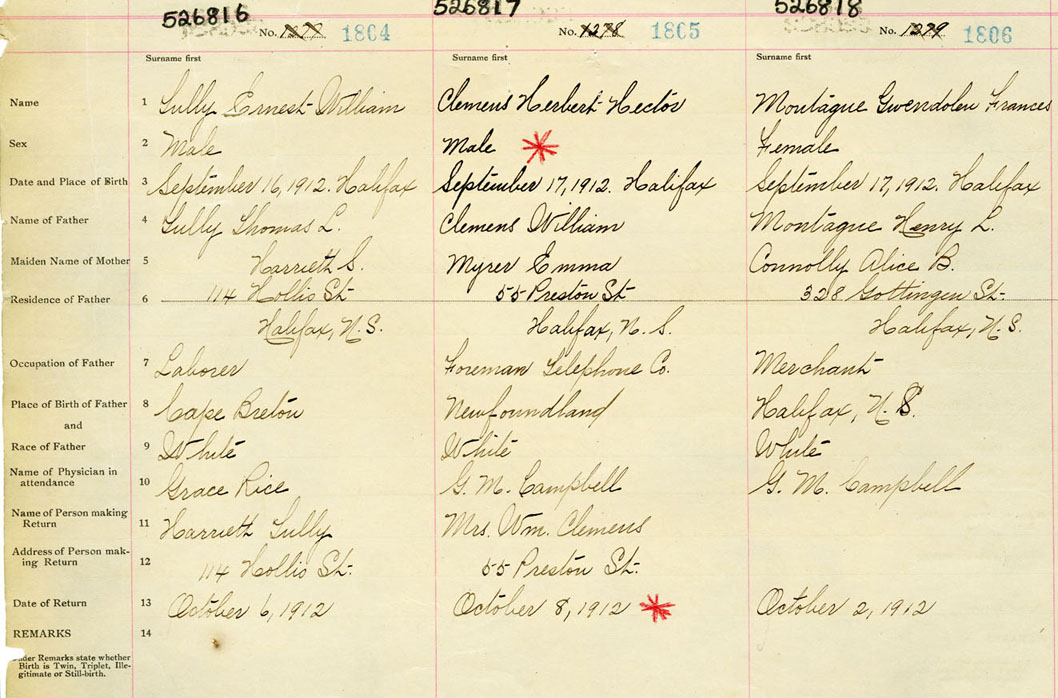 526816 526817 526818
No. 1277 1804 No. 1278 1805 No. 1279 1806
Surname first Surname first Surname first
Name 1 Lully Ernest William Clemens Herbert Hector Montague Gwendolen Frances
Sex 2 Male Male Female
Date and Place of Birth 3 September 16, 1912. Halifax September 17, 1912. Halifax September 17, 1912. Halifax
Name of Father 4 Lully Thomas L. Clemens William Montague Henry L.
Maiden Name of Mother 5 Harrieth S. Myrer Emma Connolly Alice B.
Residence of Father 6 114 Hollis St. 55 Preston St. 328 Gottingen St.
Halifax, N.S. Halifax, N.S. Halifax, N.S.
Occupation of Father 7 Laborer Foreman Telephone Co. Merchant
Place of Birth of Father 8 Cape Breton Newfoundland Halifax, N.S.
and
Race of Father 9 White White White
Name of Physician in
attendance 10 Grace Rice G. M. Campbell G. M. Campbell
Name of Person making
Return 11 Harrieth Lully Mrs. Wm. Clemens
Address of Person mak-
ing Return 12 114 Hollis St. 55 Preston St.
Date of Return 13 October 6, 1912 October 8, 1912 October 2, 1912
REMARKS 14
Under Remarks state whether
Birth is Twin, Triplet, Ille-
gitimate or Still-birth.